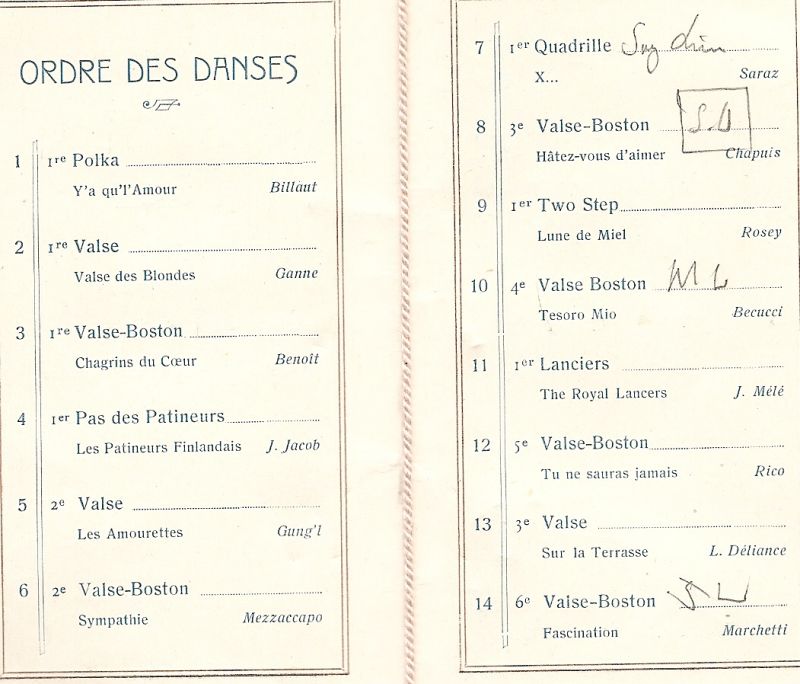 ORDRE DES DANSES
1 1re Polka
Y'a qu'l'Amour Billaut
2 1re Valse
Valse des Blondes Ganne
3 1re Valse-Boston
Chagrins du Cœur Benoît
4 1er Pas des Patineurs
Les Patineurs Finlandais J. Jacob
5 2e Valse
Les Amourettes Gung'l
6 2e Valse-Boston
Sympathie Mezzaccapo
7 1er Quadrille
X... Saraz
8 3e Valse-Boston
Hâtez-vous d'aimer Chapuis
9 1er Two Step
Lune de Miel Rosey
10 4e Valse Boston M L
Tesoro Mio Becucci
11 1er Lanciers
The Royal Lancers J. Mélé
12 5e Valse-Boston
Tu ne sauras jamais Rico
13 3e Valse
Sur la Terrasse L. Déliance
14 6e Valse-Boston
Fascination Marchetti